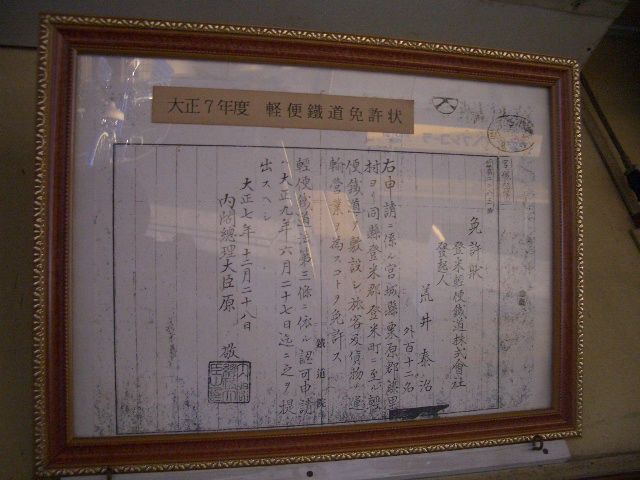 大正7年度　軽便鐵道免許状
免許状
登米輕便鐵道株式會社
發起人
荒井泰治
外百十二名
右申請ニ係ル宮城縣栗原郡築舘
村ヨリ同縣登米郡登米町ニ至ル輕
便鐵道ヲ敷設シ旅客及貨物ノ運
輸營業ヲ為スコトヲ免許ス
輕便鐵道法第三條ニ依ル認可申請
ハ大正九年六月二十七日迄ニ之ヲ提
出スヘシ
大正七年十二月二十八日
內閣總理大臣原　敬
鐵道院